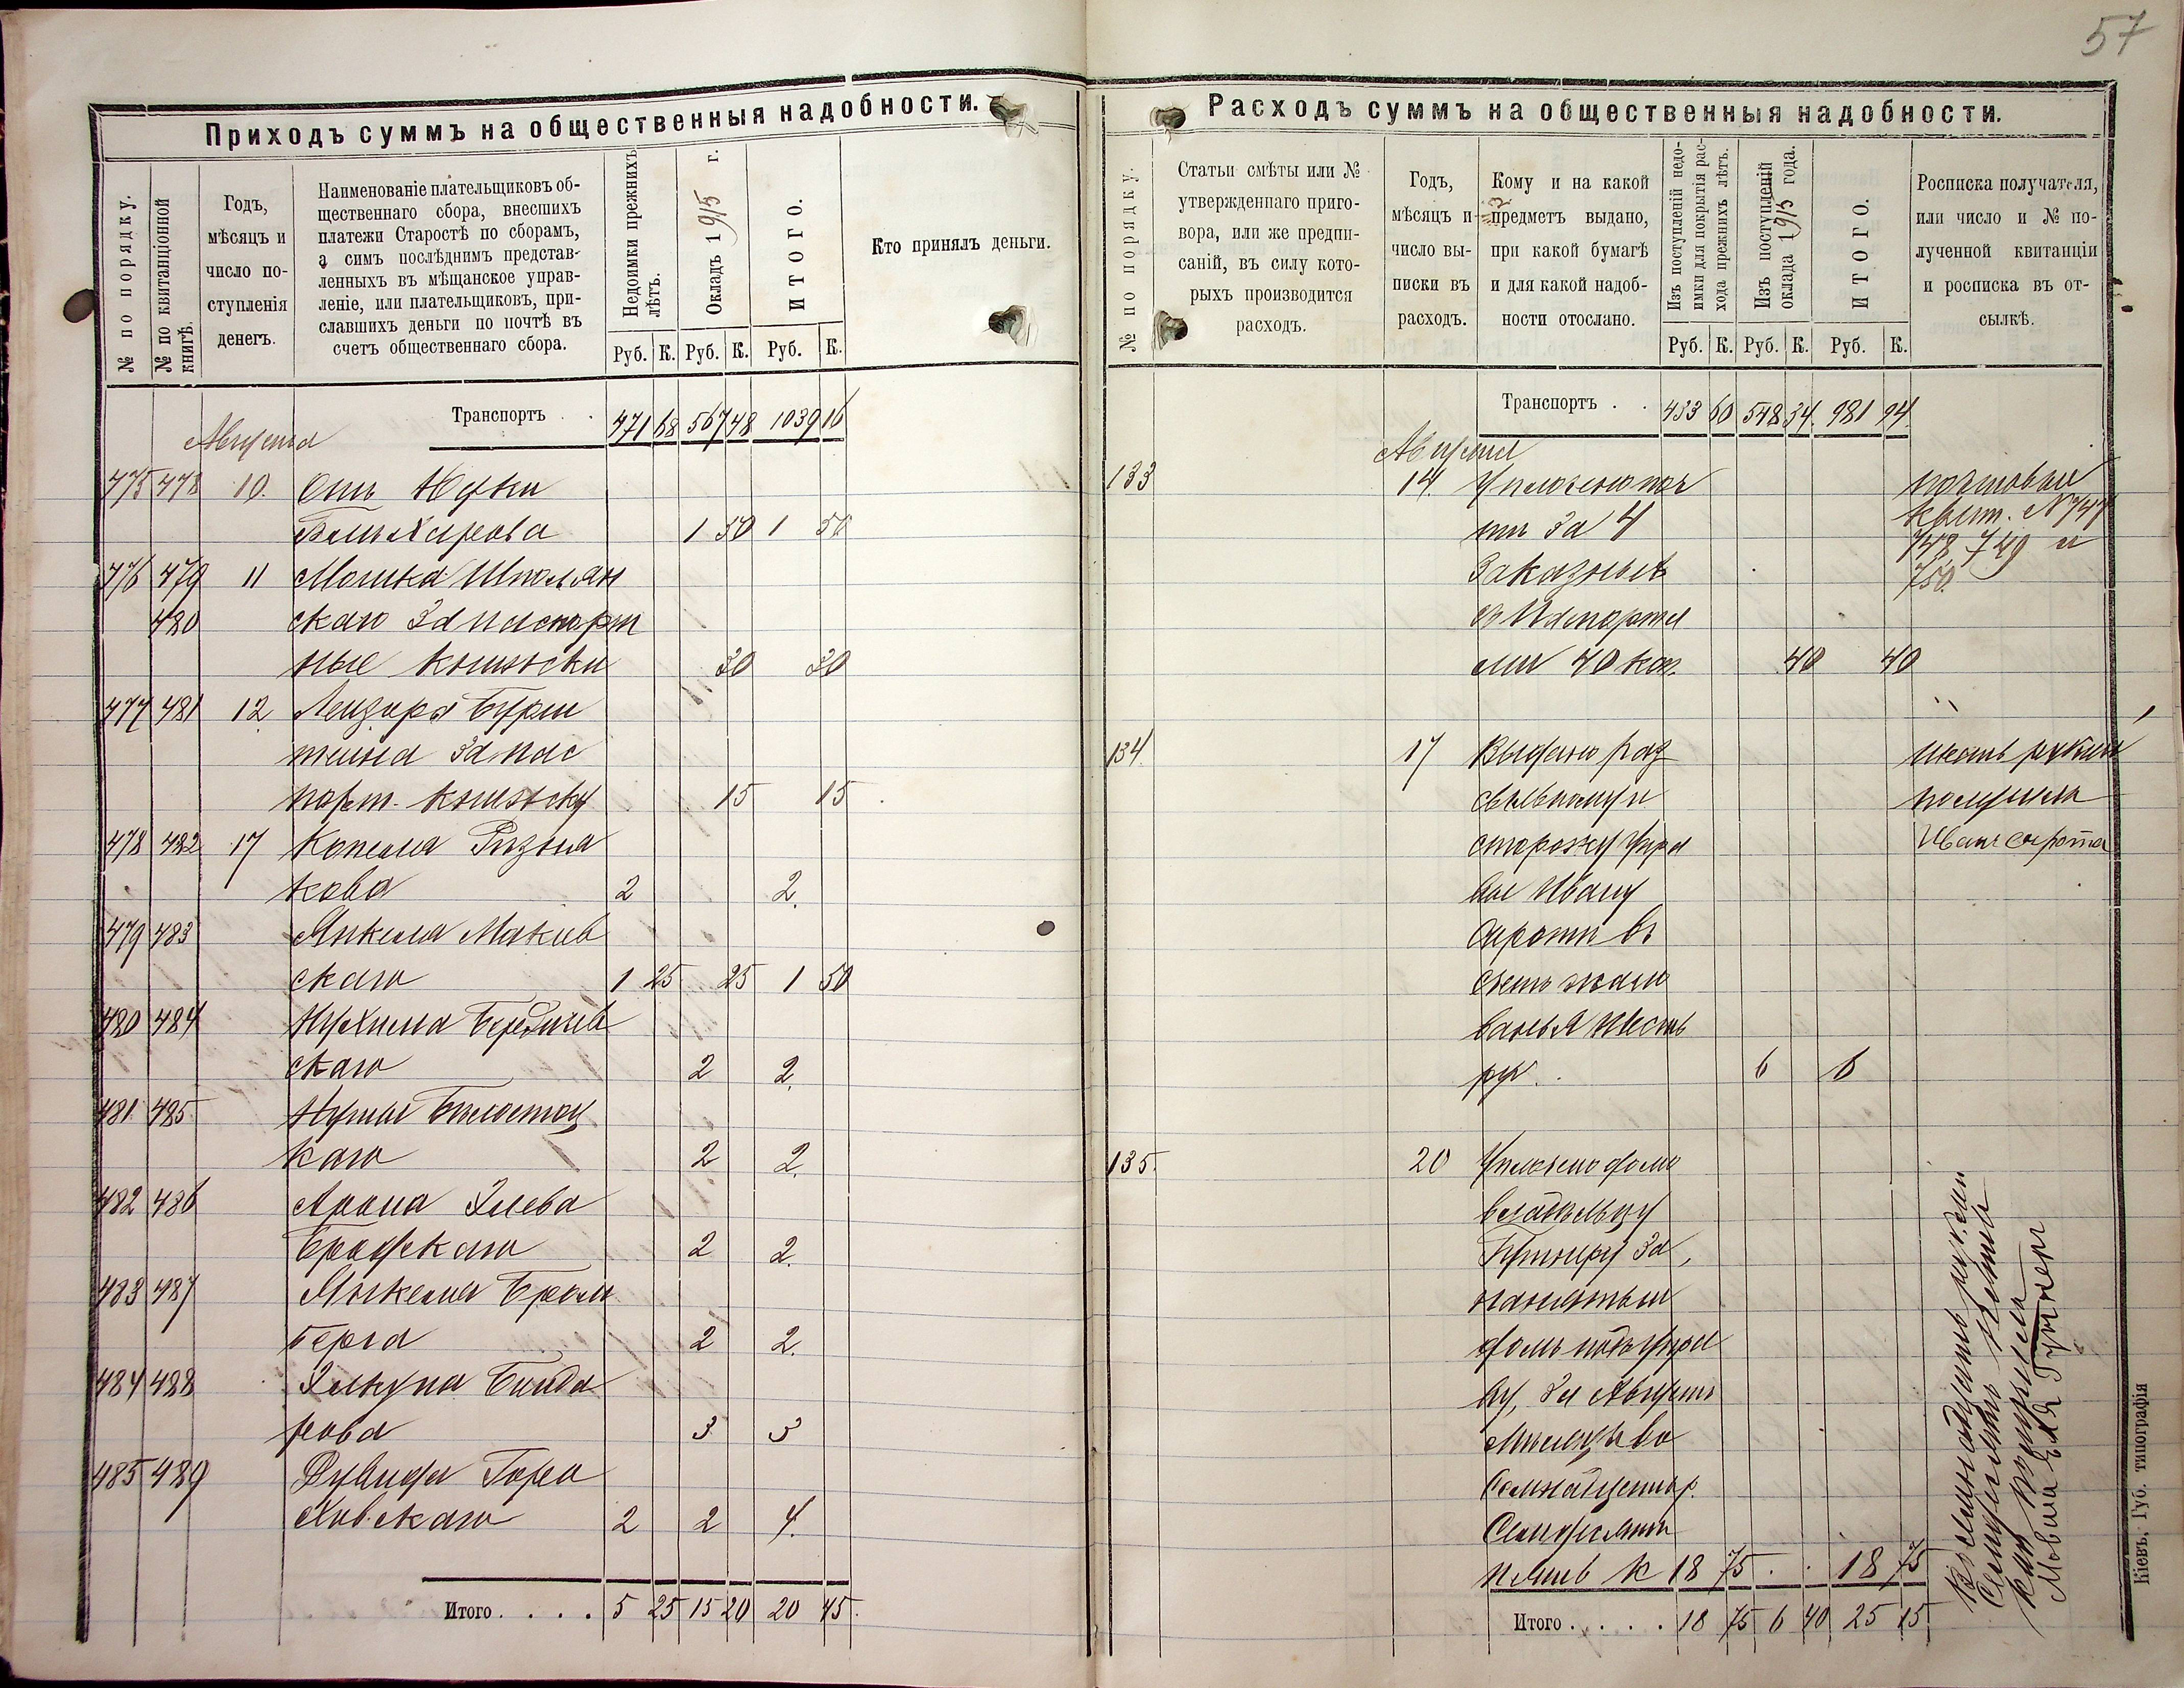 57
Приходъ суммъ на общественныя надобности.
№ по порядку.
№ по квитанціонной книгѣ.
Годъ,
мѣсяцъ и
число по-
ступленія
денегъ.
Наименованіе плательщиковъ об-
щественнаго сбора, внесшихъ
платежи Старостѣ по сборамъ,
а симъ послѣднимъ представ-
ленныхъ въ мѣщанское управ-
леніе, или плательщиковъ, при-
славшихъ деньги по почтѣ въ
счетъ общественнаго сбора.
Недоимки прежнихъ
лѣтъ.
Окладъ 1915 г.
ИТОГО.
Кто принялъ деньги.
Руб. К. Руб. К. Руб. К.
Транспортъ . . 471 68 567 48 1039 16
Августа
475 478 10. Отъ
1 50 1 50
476 479 11 Мошка Шполян
480 скаго за паспорт
ные книжки 30 30
477 481 12 Лейзора Бурш
тина за пас
порт. книжку 15 15
478 482 17 Копеля Рязна
кова 2 2.
479 483 Янкеля Макив
скаго 1 25 25 1 50
480 484 Нухима Бердичев
скаго 2 2.
481 485 Белостоц
каго 2 2.
482 486 Арона Хлева
Бродскаго 2 2.
483 487 Янкеля Бром
берга 2 2.
484 488
рова 3 3
485 489 Дувида Горо
ховскаго 2 2 4.
Итого . . . . 5 25 15 20 20 45.
Расходъ суммъ на общественныя надобности.
№ по порядку.
Статьи смѣты или №
утвержденнаго приго-
вора, или же предпи-
саній, въ силу кото-
рыхъ производится
расходъ.
Годъ,
мѣсяцъ и
число вы-
писки въ
расходъ.
Кому и на какой
предметъ выдано,
при какой бумагѣ
и для какой надоб-
ности отослано.
Изъ поступленій недо-
имки для покрытія рас-
хода прежнихъ лѣтъ.
Изъ поступленій
оклада 1915 года.
ИТОГО.
Росписка получателя,
или число и № по-
лученной квитанціи
и росписка въ от-
сылкѣ.
Руб. К. Руб. К. Руб. К.
Транспортъ . . 433 60 548 34. 981 94.
Августа
133 14. Уплочено поч почтовыи
тѣ за 4 квит. N 747
заказныхъ 748, 749 и
съ паспорта 750.
ми 40 коп. 40 40
134. 17 Выдано раз шесть рублей
сыльному и получилъ
сторожу Упра Иванъ Сирота
вы Ивану
Сироти въ
счетъ жало
ванья шесть
руб. 6 6
135. 20 Уплочено домо
владѣльцу
за
нанятый
домъ подъ Упра
ву, за Августъ
мѣсяцъ
семнадцать р.
семдесять
пять к 18 75 . . 18 75
Итого . . . . 18 75 6 40 25 15
Восемнадцать руб.
семдесятъ пять
коп получилъ
Кіевъ, Губ. типографія